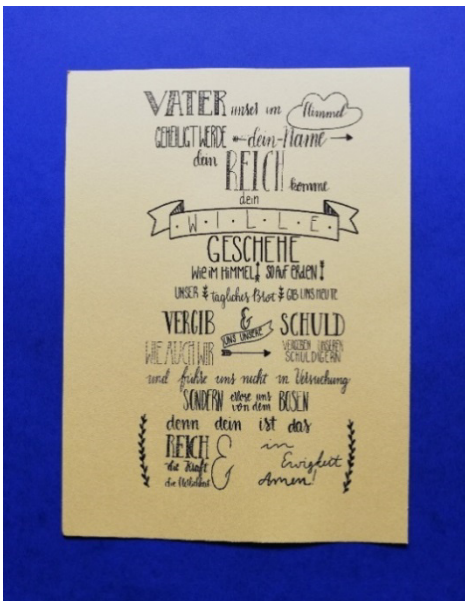 VATER unser im Himmel
GEHEILIGT WERDE dein Name
dein REICH komme
dein
W·I·L·L·E
GESCHEHE
WIE IM HIMMEL SO AUF ERDEN
UNSER tägliches Brot GIB UNS HEUTE
VERGIB & UNS UNSERE SCHULD
WIE AUCH WIR VERGEBEN UNSEREN SCHULDIGERN
und führe uns nicht in Versuchung
SONDERN erlöse uns von dem BÖSEN
denn dein ist das
REICH & in
die Kraft Ewigkeit
die Herrlichkeit Amen!